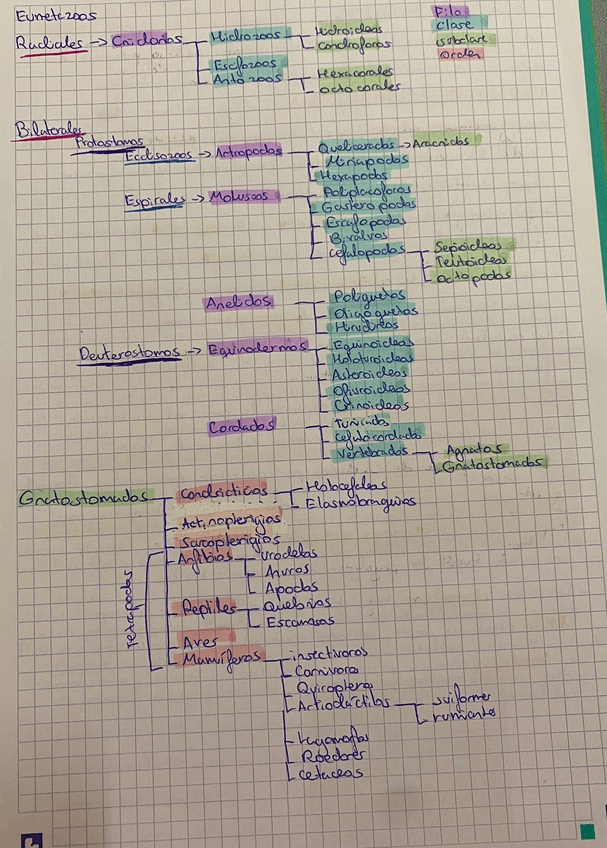 Eumetazoos
Filo
Radiales → Cnidarios
Hidrozoos
Hidroideos
clase
condroforos
subclase
orden
Escifozoos
Antozoos
Hexacorales
octocorales
Bilaterales
Protostomos
Ecdisozoos → Artropodos
Quelicerados → Aracnidos
Miriapodos
Hexapodos
Espirales → Moluscos
Poliplacoforos
Gasteropodos
Escafopodos
Bivalvos
Cefalopodos
Sepioideos
Teutoideos
octopodos
Anelidos
Poliquetos
Oligoquetos
Hirudineos
Deuterostomos → Equinodermos
Equinoideos
Holoturoideos
Asteroideos
Ofiuroideos
Crinoideos
Cordados
Tunicados
Cefalocordados
Vertebrados
Agnatos
Gnatostomados
Gnatostomados
Condricticos
Holocefalos
Elasmobranquios
Actinopterigios
Sarcopterigios
Tetrapodos
Anfibios
Urodelos
Anuros
Apodos
Reptiles
Quelonios
Escamosos
Aves
Mamiferos
insectivoros
Carnivora
Quiroptera
Artiodactilos
suiformes
rumiantes
Lagomorfos
Roedores
cetaceos